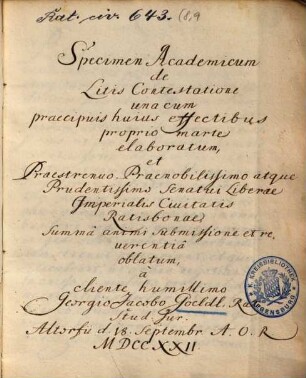 Rat. civ. 643. (8,9
Specimen Academicum
de
Litis Contestatione
una cum
praecipuis huius effectibus
proprio marte
elaboratum,
et
Praestrenuo Praenobilissimo atque
Prudentissimo Senatui Liberae
Imperialis Civitatis
Ratisbonae
Summâ animi submissione et re,
verentiâ
oblatum,
â
cliente humillimo
Georgio Jacobo
Stud. Jur.
Altorfii d. 18. Septembr. A. O. R
MDCCXXII
K. KREISBIBLIOTHEK
REGENSBURG